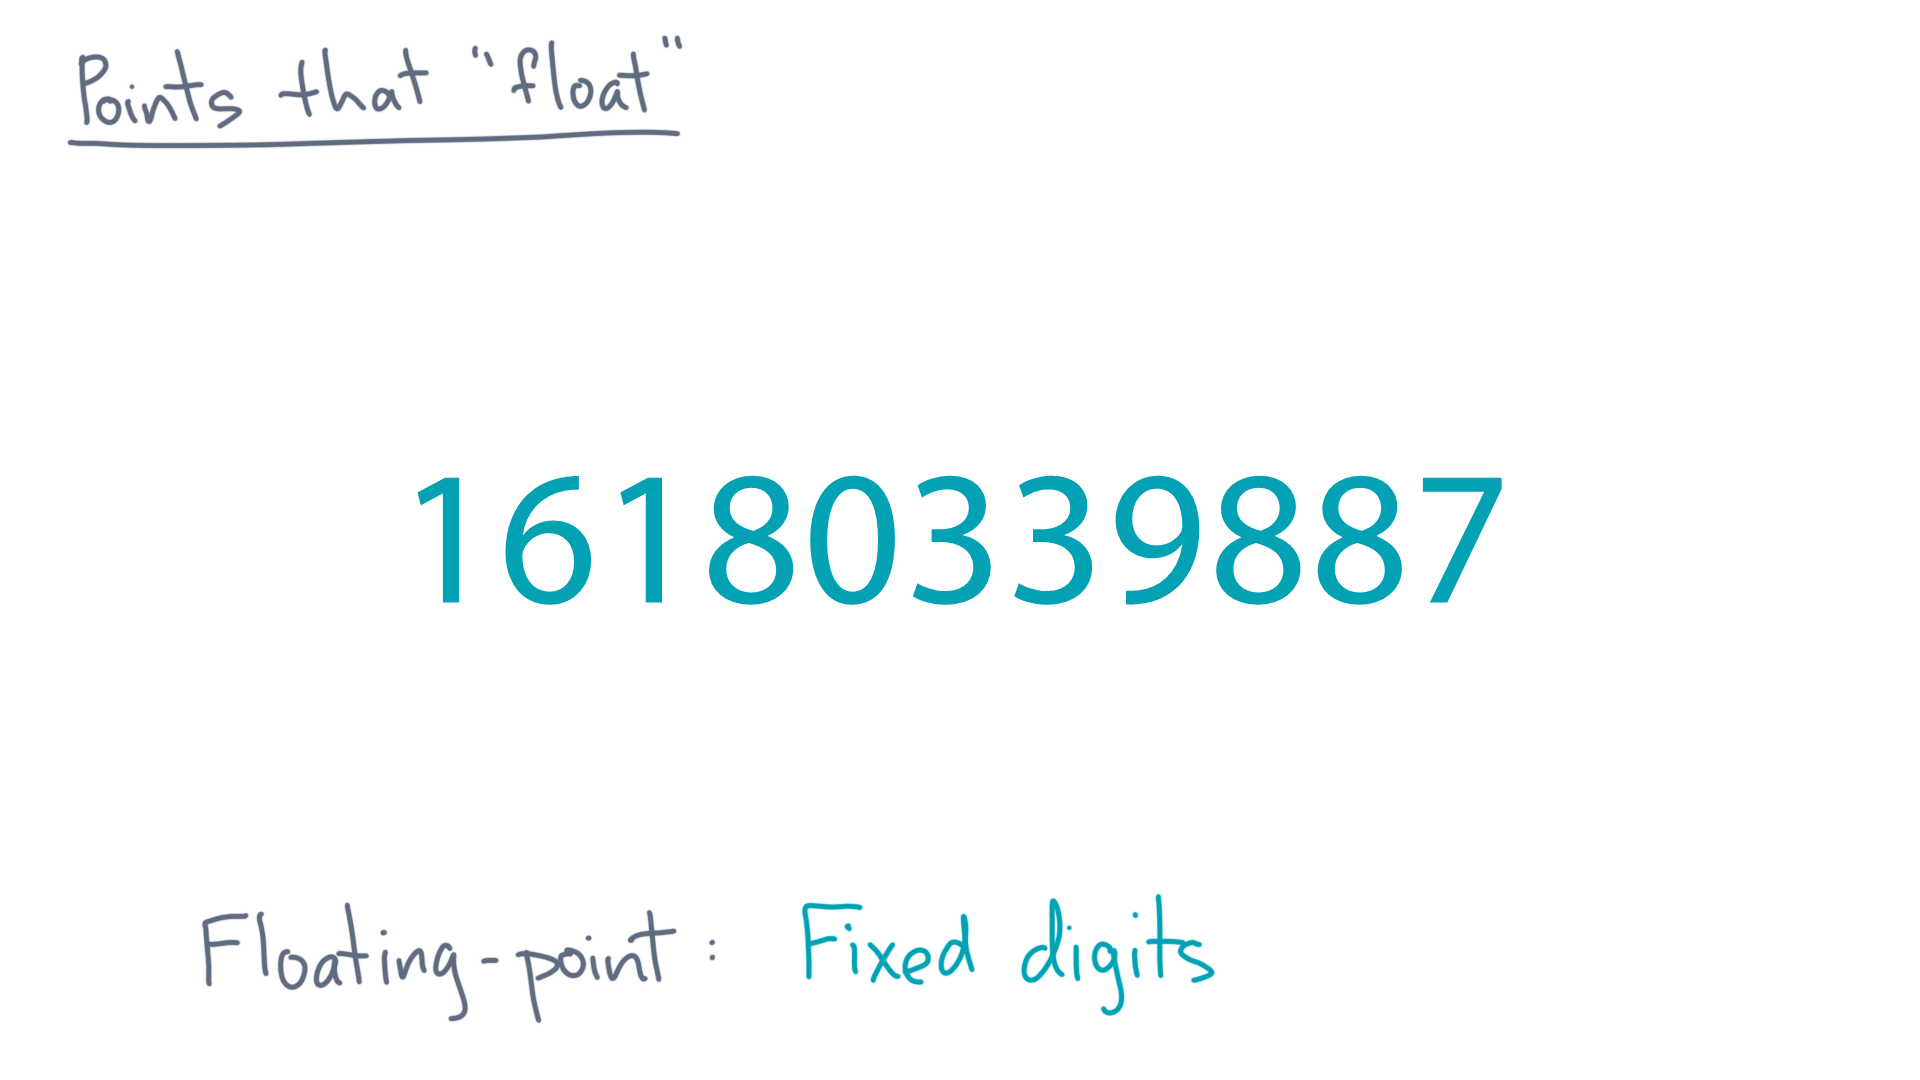 Points that "float"
16180339887
Floating-point: Fixed digits